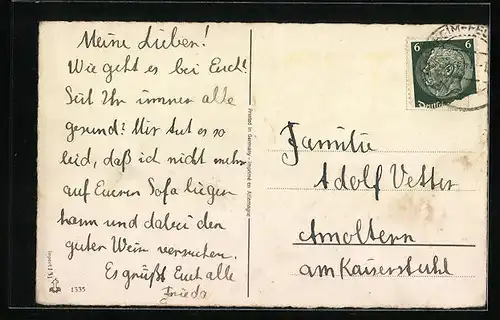 Meine Lieben!
Wie geht es bei Euch?
Seit Ihr immer alle
gesund? Mir tut es so
leid, daß ich nicht mehr
auf Eurem Sofa liegen
kann und dabei den
guten Wein versuchen.
Es grüßt Euch alle
Frieda
import
1335
Printed in Germany - Imprimé en Allemagne
6 6
Deutsches
Familie
Adolf Vetter
Amoltern
am Kaiserstuhl